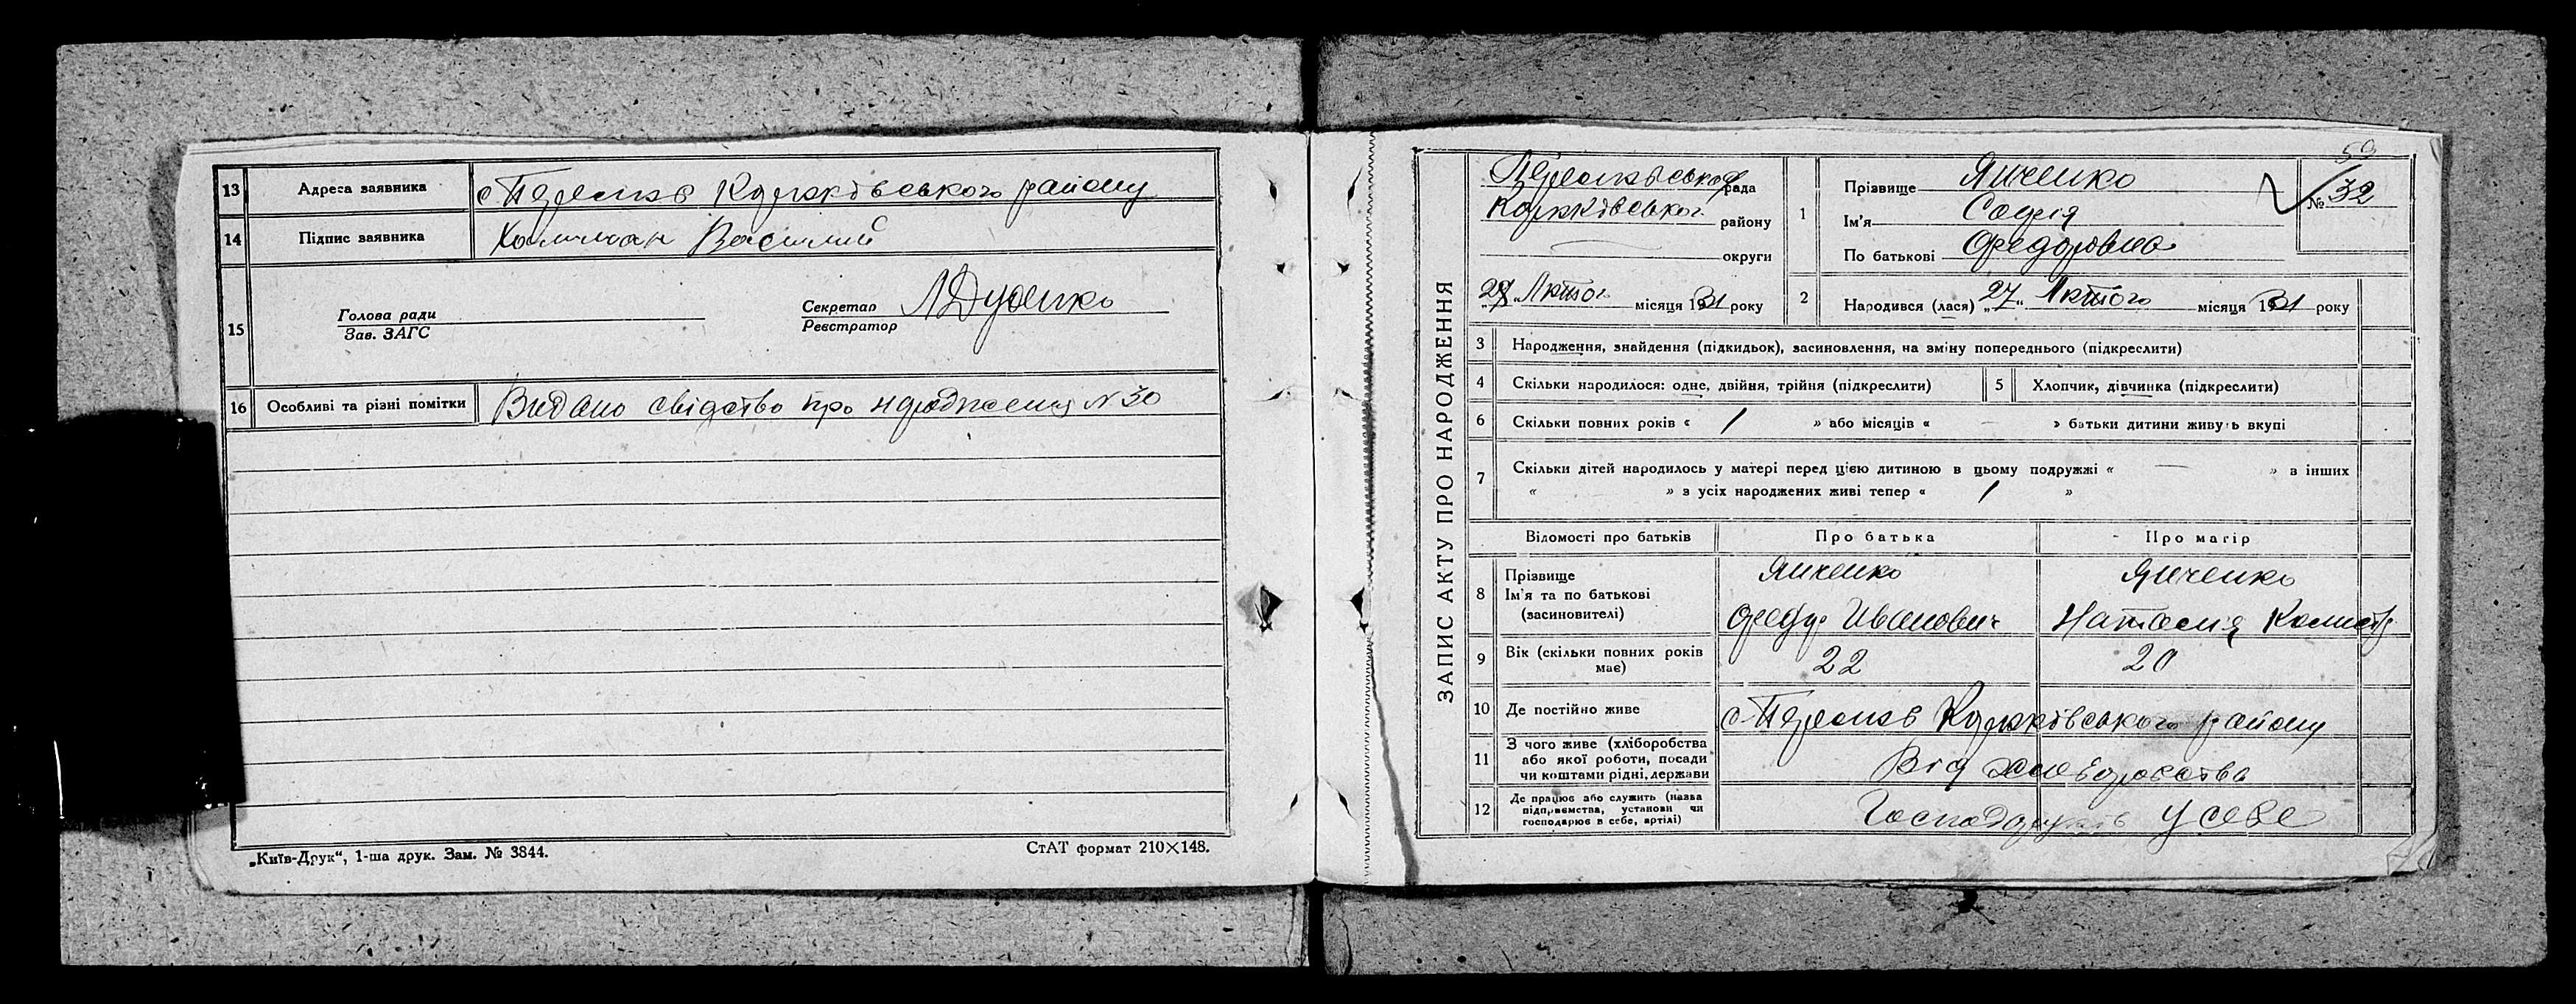 13 Адреса заявника с Переляв Коржківського району
14 Підпис заявника Василий
15
Голова ради
Зав. ЗАГС
Секретар
Реєстратор
16 Особливі та різні помітки Видано свідоство про народження N 30
„Київ-Друк“, 1-ша друк. Зам. № 3844.
СтАТ формат 210×148.
ЗАПИС АКТУ ПРО НАРОДЖЕННЯ
рада
району
округи
28 Лютого місяця 1931 року
59
№ 32
1
Прізвище Янченко
Ім'я Софія
По батькові Федоровна
2 Народився (лася) „27„ Лютого місяця 1931 року
3 Народження, знайдення (підкидьок), засиновлення, на зміну попереднього (підкреслити)
4 Скільки народилося: одне, двійня, трійня (підкреслити)
5 Хлопчик, дівчинка (підкреслити)
6 Скільки повних років « 1 » або місяців « — » батьки дитини живуть вкупі
7 Скільки дітей народилось у матері перед цією дитиною в цьому подружжі « — » в інших
« » з усіх народжених живі тепер « 1 »
Відомості про батьків Про батька Про матір
8 Прізвище
Ім'я та по батькові
(засиновителі)
Янченко
Федір Иванович
Янченко
Наталия
9 Вік (скільки повних років має) 22 20
10 Де постійно живе району
11 З чого живе (хліборобства
або якої роботи, посади
чи коштами рідні, держави
Від хліборобства
12 Де працює або служить (назва
підприємства, установи чи
господарює в себе, артілі)
Господарують у себе